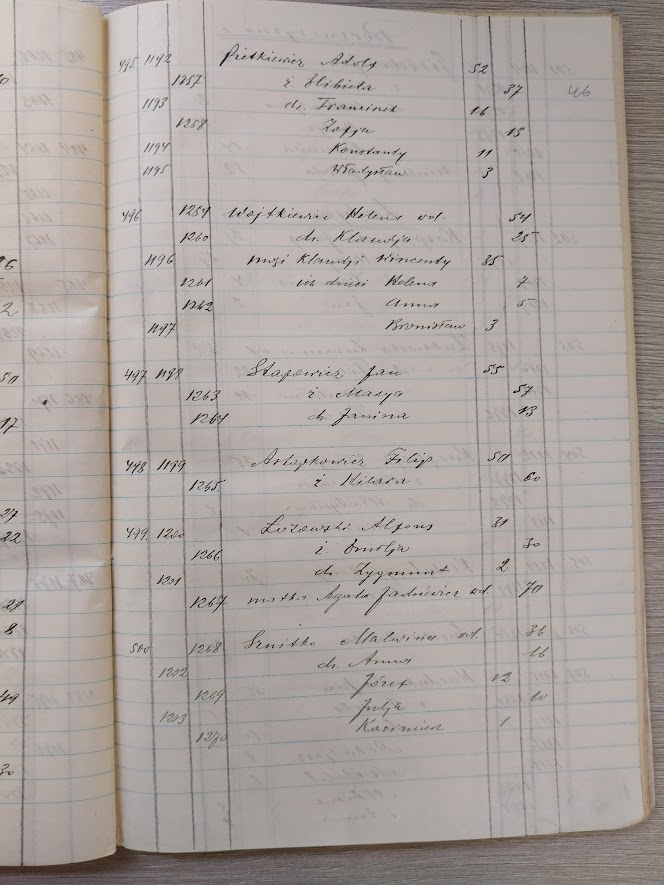 46
495. 1192 Pietkiewicz Adolf 52
1257 ż Elżbieta 37
1193 dz. Franciszek 16
1258 Zofja 13
1194 Konstanty 11
1195 Władysław 3
496. 1259 Wojtkiewicz Helena wd. 54
1260 dz. Klaudja 25
1196 mąż Klaudji Wincenty 35
1261 ich dzieci Helena 7
1262 Anna 5
1197 Bronisław 3
497 1198 Stapowicz Jan 55
1263 ż Marya 57
1264 dz. Janina 13
498 1199 Astapkowicz Filip 50
1265 ż 60
499. 1200 Alfons 31
1266 ż Emilja 30
1201 dz. Zygmunt 2
1267 matka Agata wd. 70
500 1268 Sznitko Malwina wd. 36
dz. Anna 16
1202 Józef 12
1269 Julja 10
1203 Kazimierz 1
1270